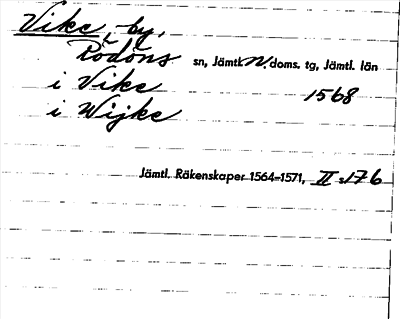 Vike, by,
Rödöns sn, Jämtl. N. doms. tg, Jämtl. län
i Vike 1568
i Wijke
Jämtl. Räkenskaper 1564–1571, II s. 176